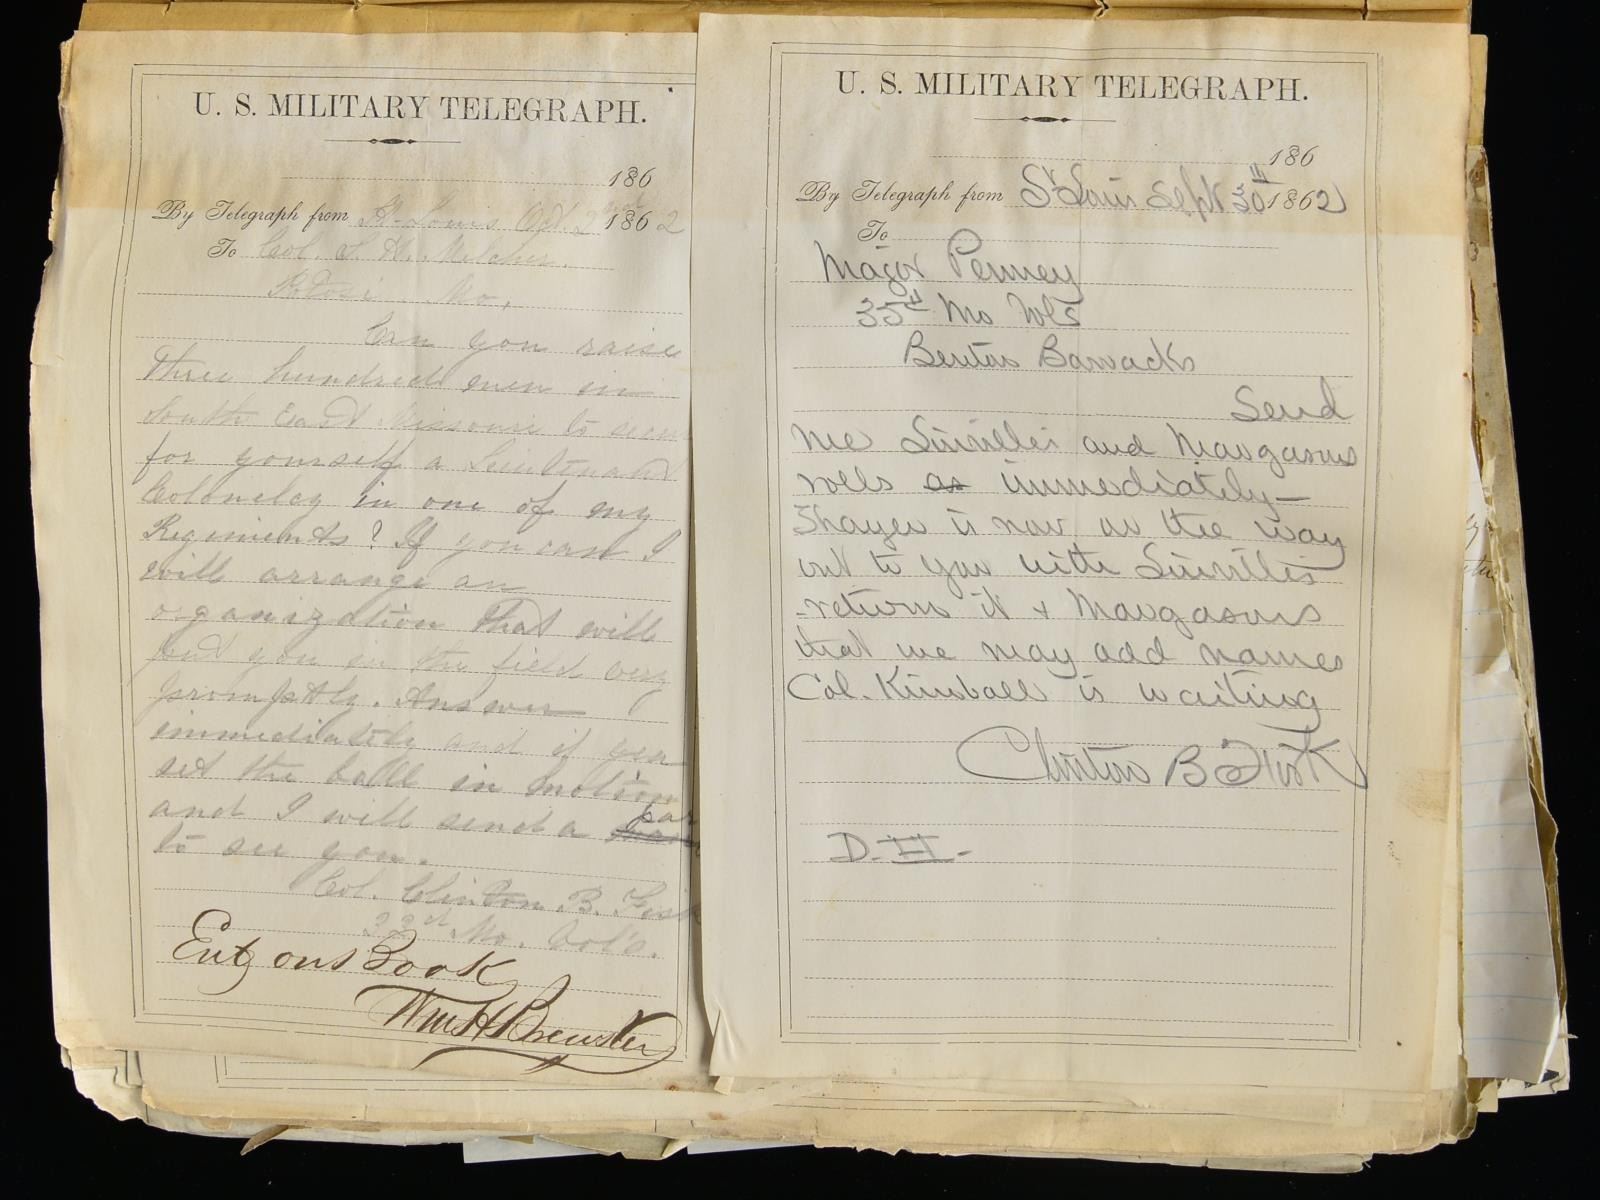 U. S. MILITARY TELEGRAPH.
186
By Telegraph from St. Louis Oct. 2nd 1862
To Col. S. H. Melcher.
Potosi Mo,
Can you raise
three hundred men in
South East Missouri to secure
for yourself a Lieutenant
Colonelcy in one of my
Regiments? If you can I
will arrange an
organization that will
put you in the field very
promptly. Answer
immediately and if yea
set the ball in motion
and I will send a
to see you.
Col. Clinton B. Fisk
33d Mo. Vol's.
Entg on Book
Wm H Brewster
U. S. MILITARY TELEGRAPH.
186
By Telegraph from St Louis Sept 30th 1862
To
Major Penney
33d Mo Vols
Benton Barracks
Send
me and
rolls as immediately—
Thayer is now on the way
out to you with
return it +
that we may add names
Col. Kimball is waiting
Clinton B Fisk
D. H.